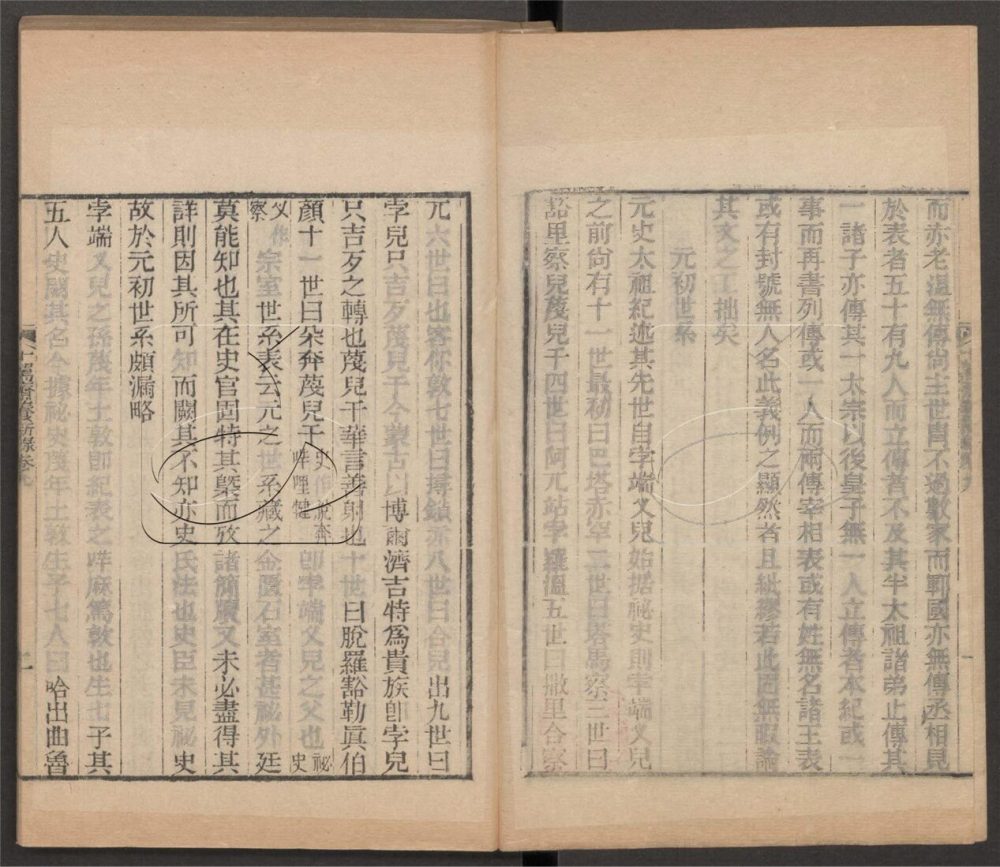 而亦老溫無傳尚主世冑不過數家而鄆國亦無傳丞相見
於表者五十有九人而立傳者不及其半太祖諸弟止傳其
一諸子亦傳其一太宗以後皇子無一人立傳者本紀或一
事而再書列傳或一人而兩傳宰相表或有姓無名諸王表
或有封號無人名此義例之顯然者且紕繆若此固無暇論
其文之工拙矣
元初世系
元史太祖紀述其先世自孛端叉兒始据祕史則孛端叉兒
之前尚有十一世最初曰巴塔赤罕二世曰塔馬察三世曰
豁里察兒蔑兒干四世曰阿兀站孛羅溫五世曰撒里合察
兀六世曰也客你敦七世曰撏鎖赤八世曰合兒出九世曰
孛兒只吉歹蔑兒干今蒙古以博爾濟吉特為貴族卽孛兒
只吉歹之轉也蔑兒干華言善射也十世曰脫羅豁勒眞伯
顏十一世曰朵奔蔑兒干史作脫奔咩哩犍卽孛端叉兒之父也祕史
叉作察宗室世系表云元之世系藏之金匱石室者甚祕外廷
莫能知也其在史官固特其槩而攷諸簡牘又未必盡得其
詳則因其所可知而闕其不知亦史氏法也史臣未見祕史
故於元初世系頗漏略
孛端叉兒之孫蔑年土敦卽紀表之咩麻篤敦也生七子其
五人史闕其名今據祕史蔑年土敦生子七人曰哈出曲魯
十駕齋養新錄卷九